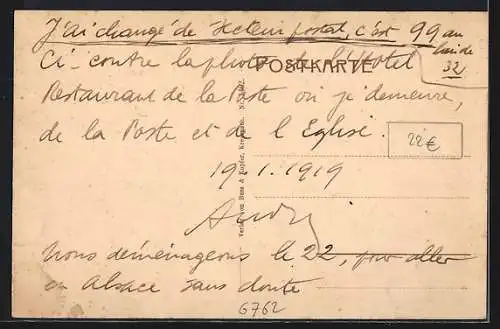 J'ai changé de secteur postal, c'est 99 au lieu de 32
Ci-contre la photo de l'Hotel
POSTKARTE
Restaurant de la Poste où je demeure,
de la Poste et de l'Eglise.
22€
19.1.1919
André
Nous déménageons le 22, pour aller
en Alsace sans doute
6762
Verlag von Buss & Kupfer,